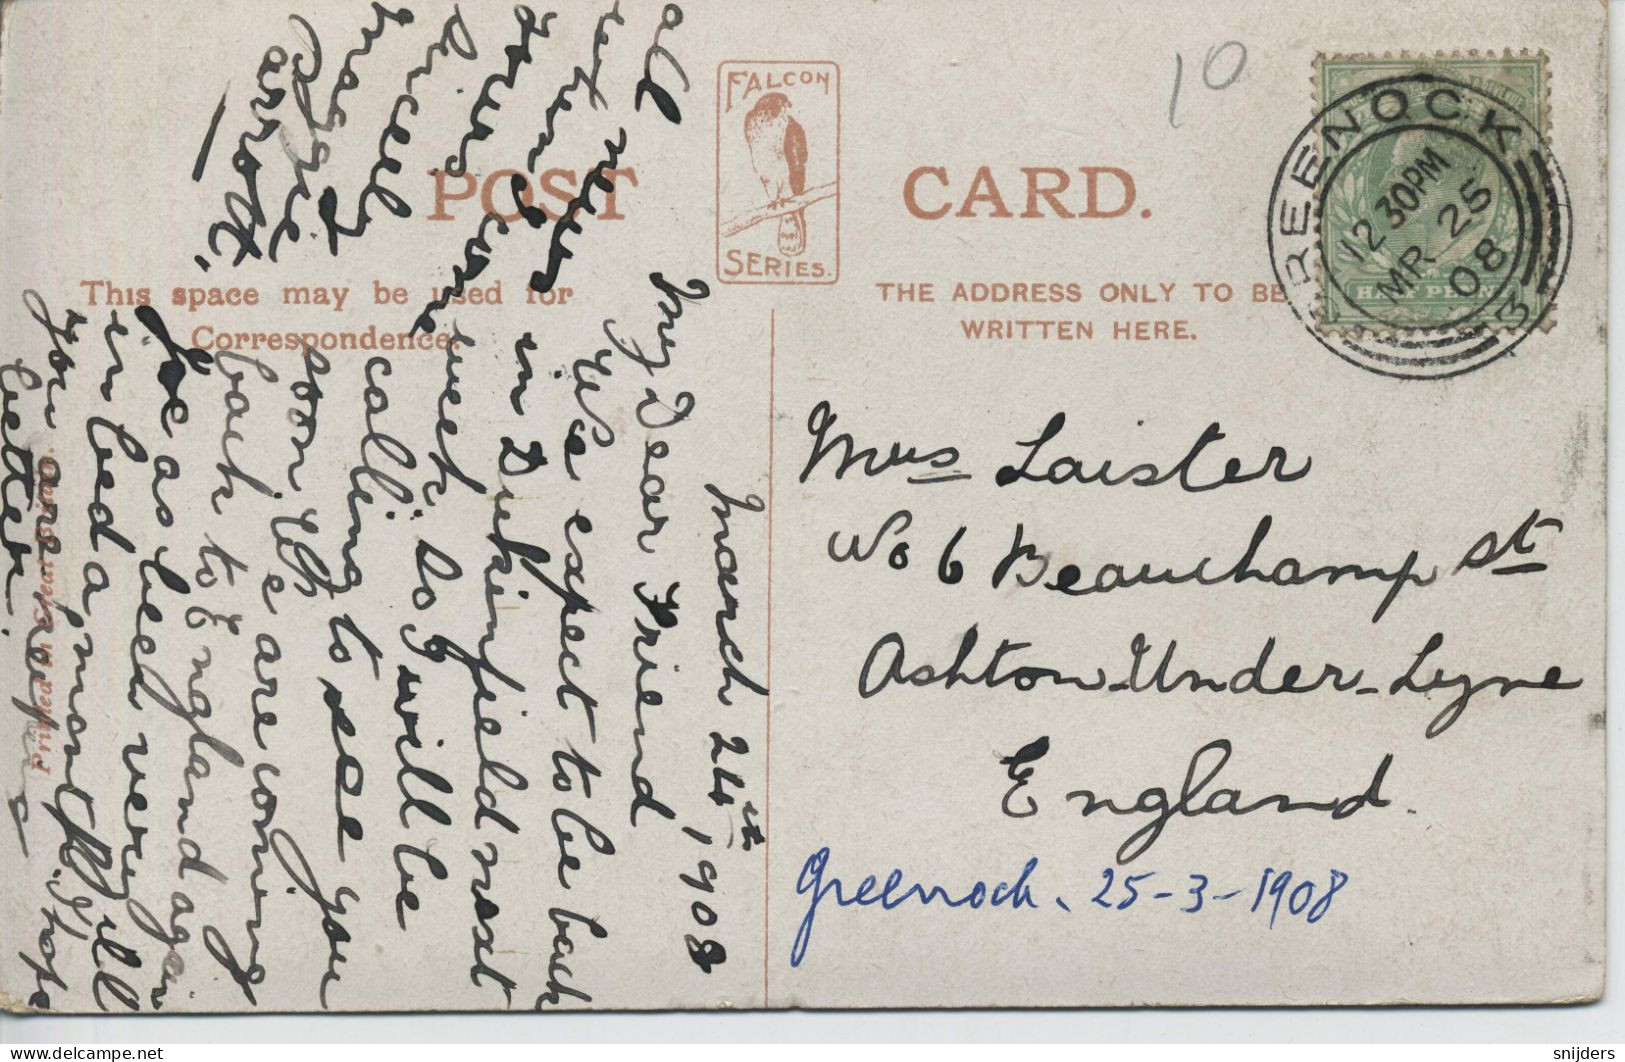 FALCON
SERIES.
POST CARD.
This space may be used for
Correspondence.
THE ADDRESS ONLY TO BE
WRITTEN HERE.
10
GREENOCK
12 30PM
MR 25
08
3
HALF PENNY
Mrs Laister
No 6 Beauchamp St
Ashton-Under-Lyne
England.
Greenock. 25-3-1908
March 24th 1908
My Dear Friend
We expect to be back
in Dukinfield next
week. So I will be
calling to see you
soon. We are coming
back to England again
Joe as been very ill
in bed a month. I hope
you are
better.
all news
Printed in
snijders